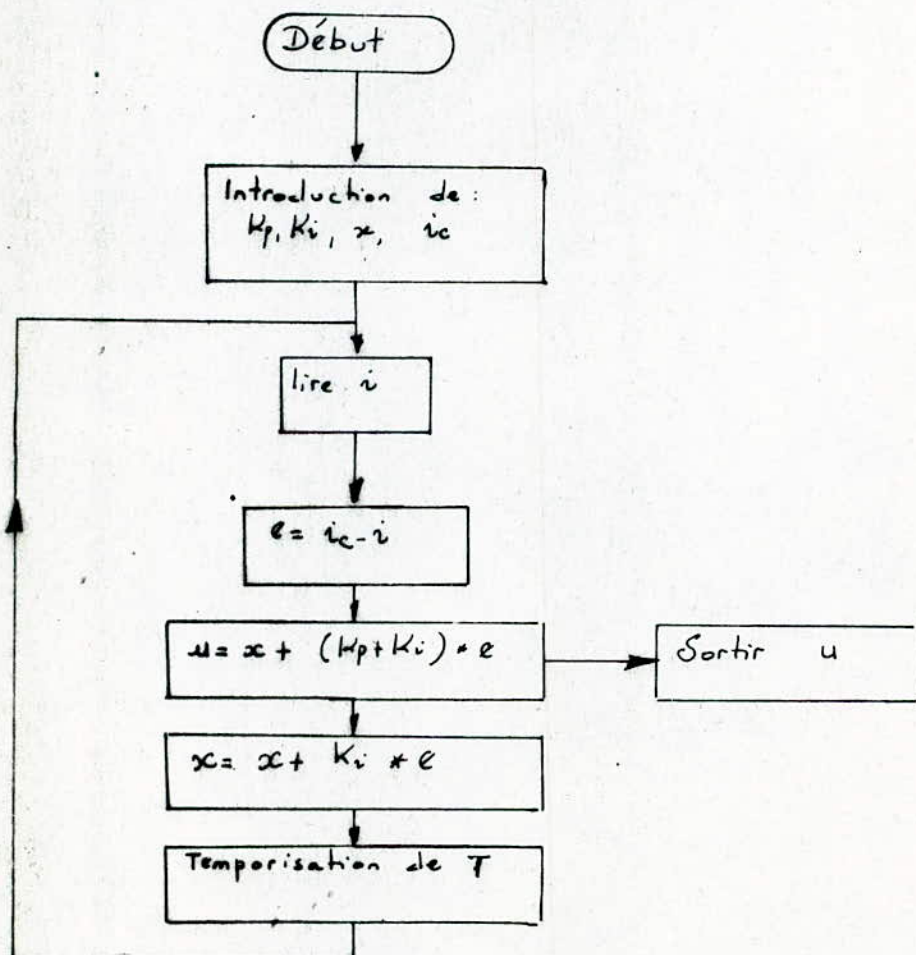 Début
Introduction de :
Kp, Ki, x, ic
lire i
e = ic - i
u = x + (Kp + Ki) * e
Sortir u
x = x + Ki * e
Temporisation de T